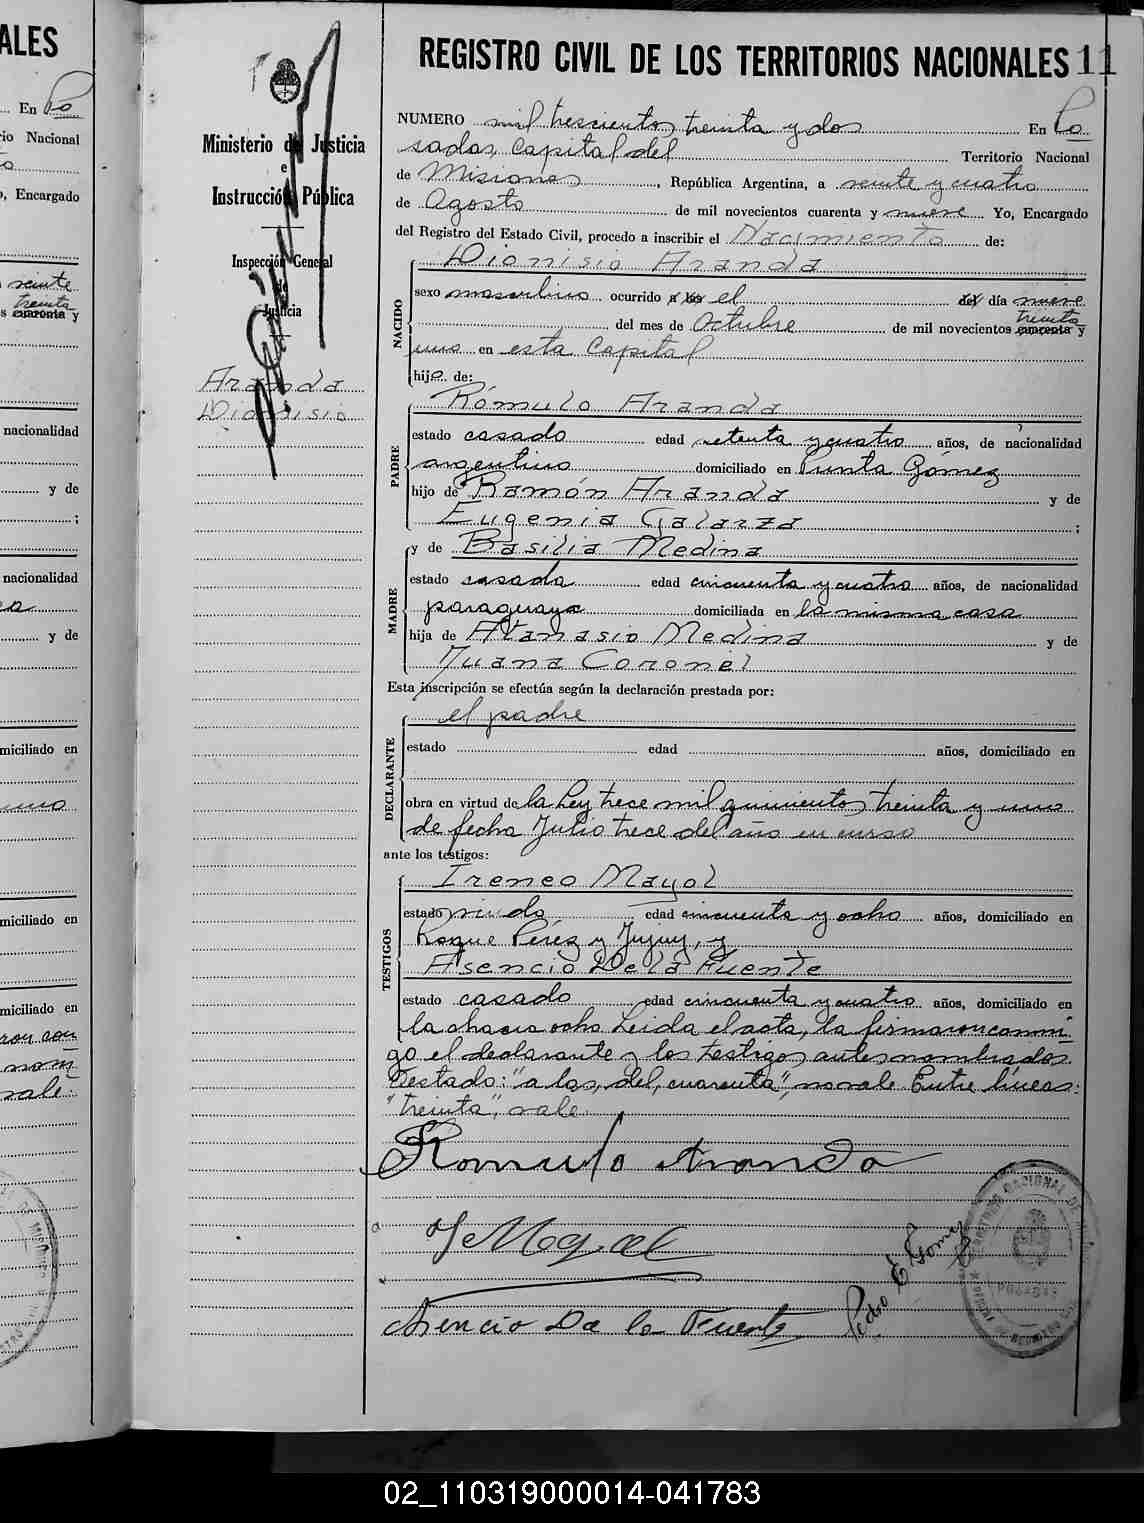 ALES
En Po
rio Nacional
, Encargado
veinte
treinta
s cuarenta y
nacionalidad
y de
;
nacionalidad
y de
miciliado en
miciliado en
miciliado en
vale
REGISTRO CIVIL DE LOS TERRITORIOS NACIONALES 11
Ministerio de Justicia
e
Instrucción Pública
Inspección General
de
Justicia
Aranda
Dionisio
NUMERO mil trescientos treinta y dos En Po
sadas, Capital del Territorio Nacional
de Misiones, República Argentina, a veinte y cuatro
de Agosto de mil novecientos cuarenta y nueve Yo, Encargado
del Registro del Estado Civil, procedo a inscribir el Nacimiento de:
NACIDO
Dionisio Aranda
sexo masculino ocurrido a las el del día nueve
treinta
del mes de Octubre de mil novecientos cuarenta y
uno en esta Capital
hijo de:
PADRE
Rómulo Aranda
estado casado edad setenta y cuatro años, de nacionalidad
argentino domiciliado en Punta Gómez
hijo de Ramón Aranda y de
Eugenia Galarza ;
MADRE
y de Basilia Medina
estado casada edad cincuenta y cuatro años, de nacionalidad
paraguaya domiciliada en la misma casa
hija de Atanasio Medina y de
Juana Coronel
Esta inscripción se efectúa según la declaración prestada por:
DECLARANTE
el padre
estado edad años, domiciliado en
obra en virtud de la Ley trece mil quinientos treinta y uno
de fecha Julio trece del año en curso
ante los testigos:
TESTIGOS
Ireneo Mayol
estado viudo edad cincuenta y ocho años, domiciliado en
Roque Pérez y Jujuy, y
Asencio De la Fuente
estado casado edad cincuenta y cuatro años, domiciliado en
la chacra ocho Leida el acta, la firmaron conmi
go el declarante y los testigos antes nombrados.
Testado: "a las, del, cuarenta", no vale Entre líneas:
"treinta", vale.
Romulo Aranda
Asencio De la Fuente
Pedro E Gomez
POSADAS
02_110319000014-041783